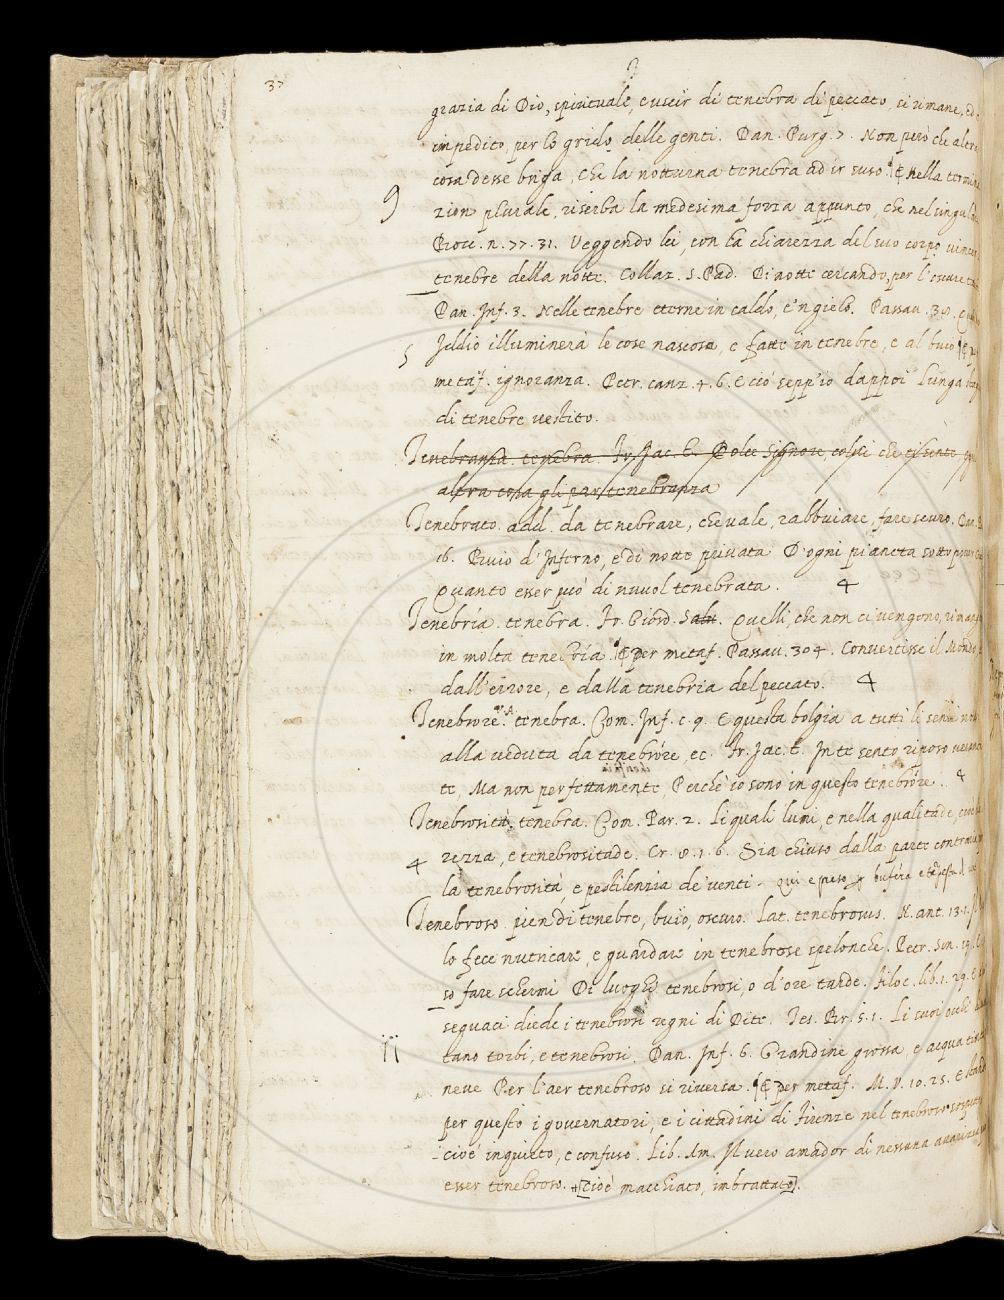 37
grazia di Dio, spirituale, e uscir di tenebra di peccato, si rimane, ed è
impedito, per lo grido delle genti. Dan. Purg. 7. Non però che altra
cosa desse briga, Che la notturna tenebra ad ir suso. E nella termina
9 zion plurale, riserba la medesima forza appunto, che nel singulare
Bocc. n. 77. 31. Veggendo lei, con la chiarezza del suo corpo vincere
tenebre della notte. Collaz. S. Pad. Di notte cercando, per l'oscure
Dan. Inf. 3. Nelle tenebre eterne in caldo, e 'n gielo. Passau. 39.
5 Iddio illuminerà le cose nascosa, e fatte in tenebre, e al buio. E per
metaf. ignoranza. Petr. canz. 4. 6. E ciò sepp'io dappoi Lunga
di tenebre vestito.
Tenebranza. tenebra. Fr. Jac. T. Dolce Signore colui che
altra cosa gli par tenebranza
Tenebrato. add. da tenebrare, che vale, rabbuiare, fare scuro. Dan.
16. Buio d'Inferno, e di notte privata D'ogni pianeta sotto
Quanto esser può di nuvol tenebrata. 4
Tenebría. tenebra. Fr. Giord. Salu. Quelli, che non ci vengono,
in molta tenebría. E per metaf. Passau. 304. Convertisse il Mondo
dall'errore, e dalla tenebria del peccato. 4
Tenebróre. V.A. tenebra. Com. Inf. c. 9. E questa bolgia a tutti li
alla veduta da tenebróre, ec. Fr. Jac. T. In te sento riposo
te, Ma non perfettamente, Perchè io sono in questo tenebróre. 4
Tenebrosità, tenebra. Com. Par. 2. Li quali lumi, e nella qualitade,
4 rezza, e tenebrositade. Cr. 8. 1. 6. Sia chiuso dalla parte
la tenebrosità, e pestilenzia de' venti. qui e preso
Tenebroso. pien di tenebre, buio, oscuro. Lat. tenebrosus. N. ant. 13. 1.
lo fece nutricare, e guardare in tenebrose spelonche. Petr. Son. 19.
so fare schermi Di luoghi tenebrosi, o d'ore tarde. Filoc. lib. 1. 29.
seguaci diede i tenebrosi regni di Dite. Tes. Br. 5. 1. Li suoi occhi
11 tano torbi, e tenebrosi. Dan. Inf. 6. Grandine grossa, e acqua
neve Per l'aer tenebroso si riversa. E per metaf. M. V. 10. 25. E
per questo i governatori, e i cittadini di Firenze nel tenebroso
cioè inquieto, e confuso. Lib. Am. Il vero amador di nessuna avarizia
esser tenebroso. cioè macchiato, imbrattato.